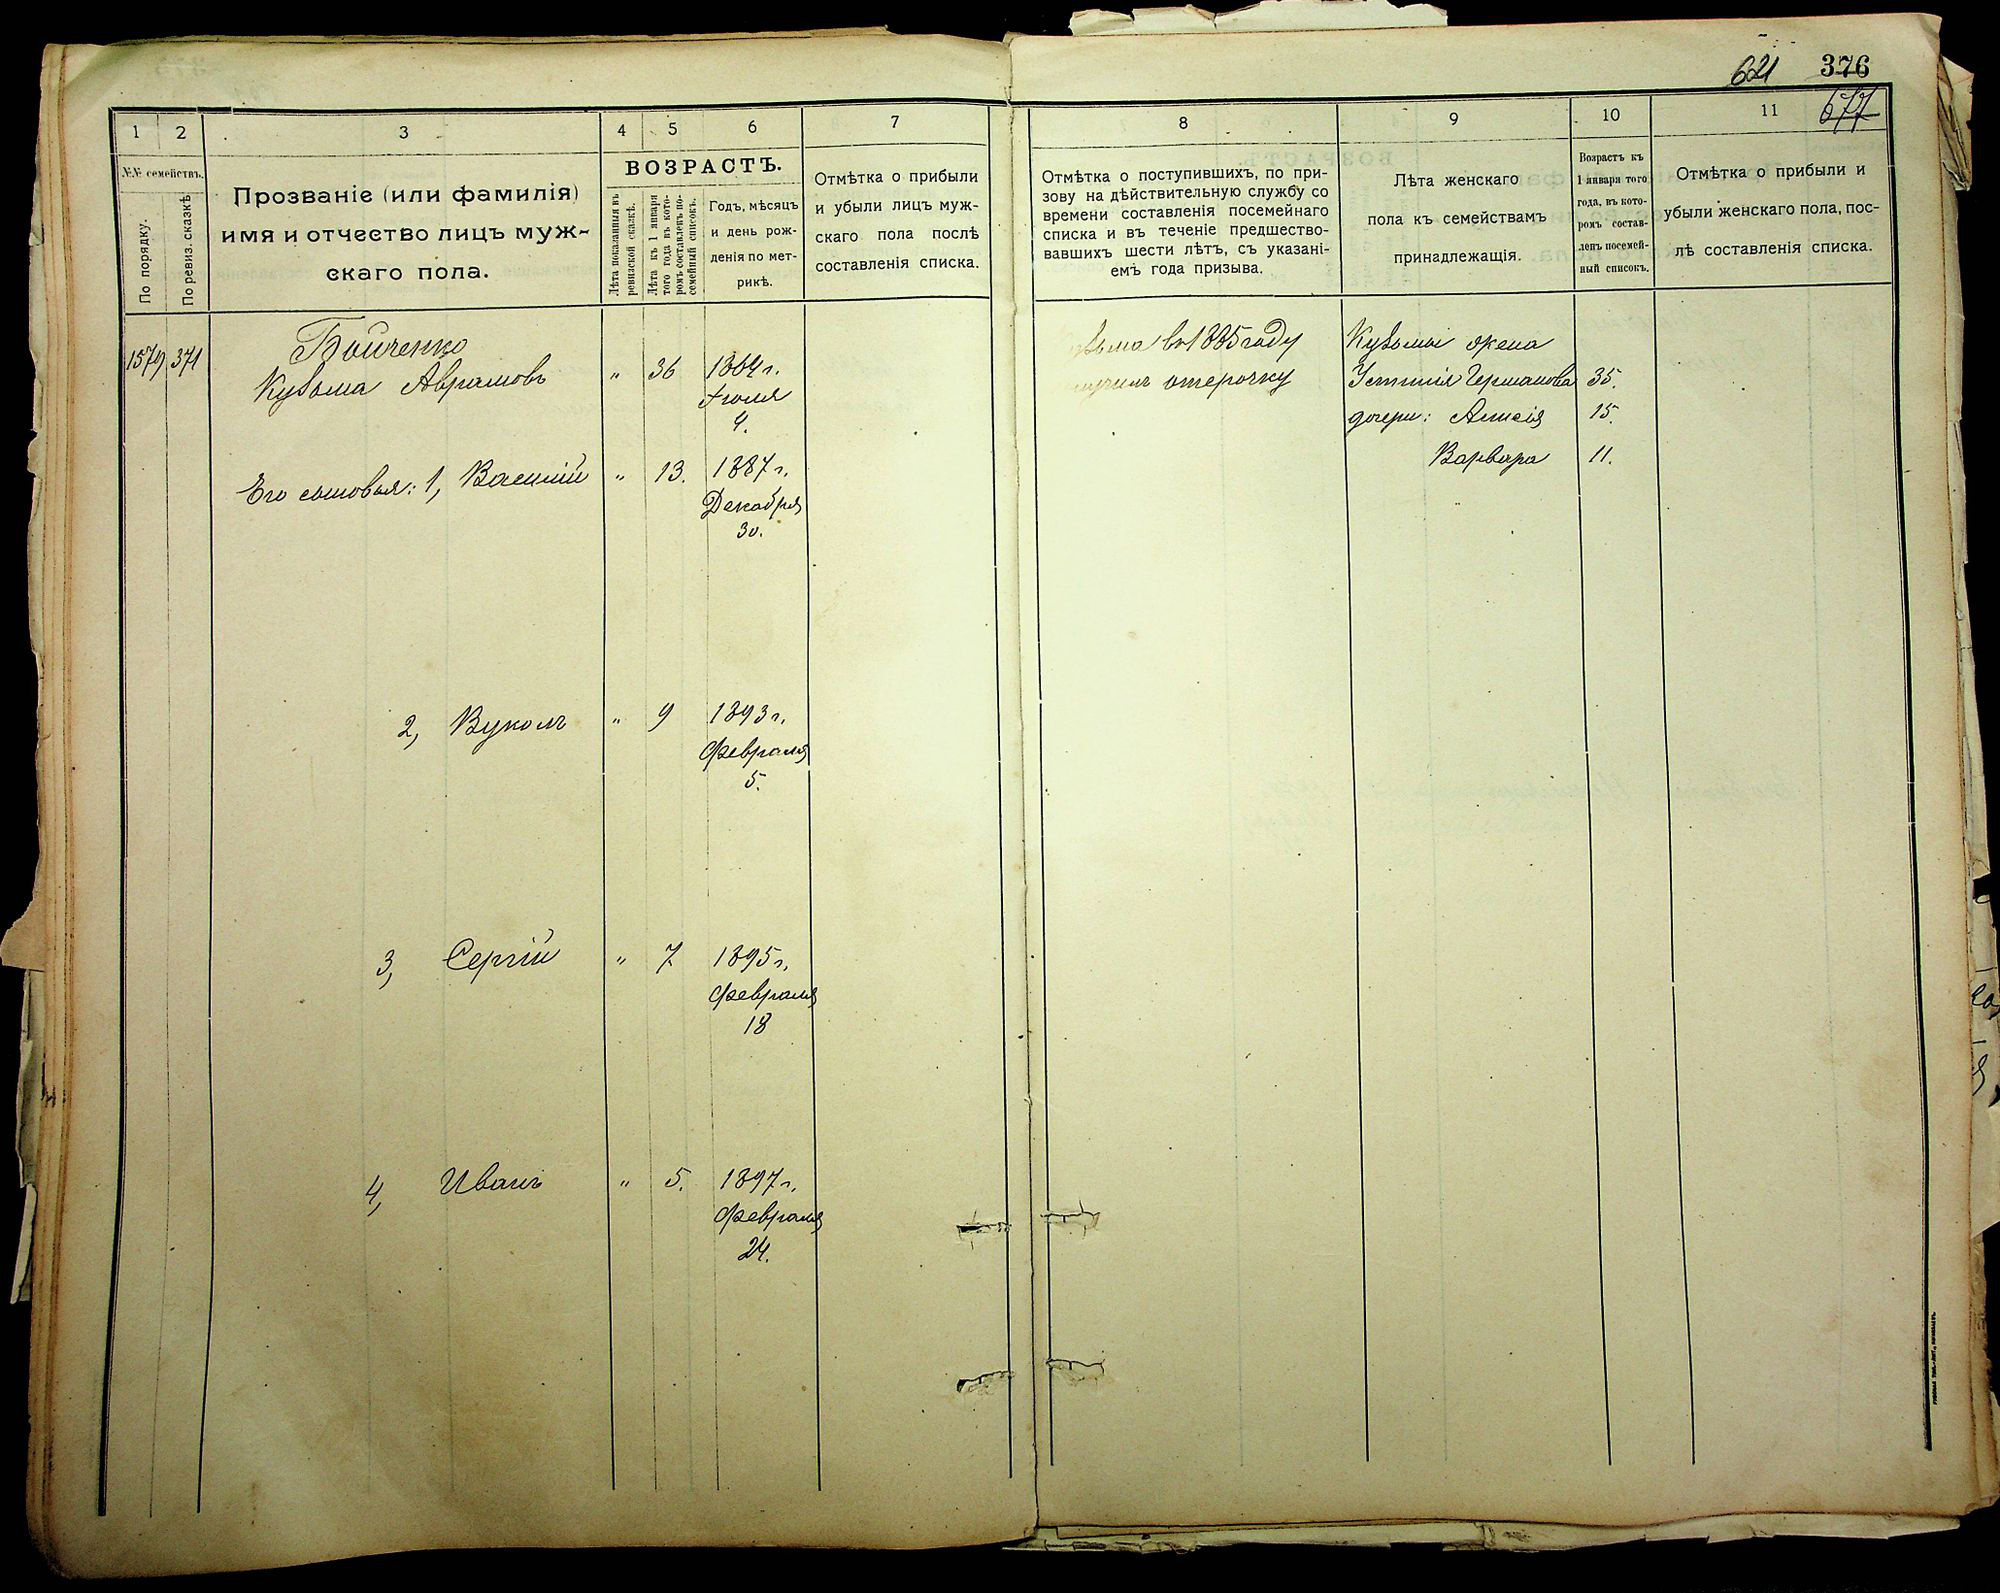 621 376
677
1 2 3 4 5 6 7 8 9 10 11
№№ семействъ.
По порядку.
По ревиз. сказкѣ
Прозваніе (или фамилія)
имя и отчество лицъ муж-
скаго пола.
ВОЗРАСТЪ.
Лѣта показанныя въ
ревизской сказкѣ.
Лѣта къ 1 января
того года въ кото-
ромъ составленъ по-
семейный списокъ.
Годъ, мѣсяцъ
и день рож-
денія по мет-
рикѣ.
Отмѣтка о прибыли
и убыли лицъ муж-
скаго пола послѣ
составленія списка.
Отмѣтка о поступившихъ, по при-
зову на дѣйствительную службу со
времени составленія посемейнаго
списка и въ теченіе предшество-
вавшихъ шести лѣтъ, съ указані-
емъ года призыва.
Лѣта женскаго
пола къ семействамъ
принадлежащія.
Возрастъ къ
1 января того
года, въ кото-
ромъ состав-
ленъ посемей-
ный списокъ.
Отмѣтка о прибыли и
убыли женскаго пола, пос-
лѣ составленія списка.
1579 371
Бойченко
Кузьма Аврамовъ " 36 1864 г.
Іюля
4.
Его сыновья: 1, Василій " 13. 1887 г.
Декабря
30.
2, Вуколъ " 9 1893 г.
Февраля
5.
3, Сергій " 7 1895 г.
Февраля
18
4, Иванъ " 5. 1897 г.
Февраля
24.
въ 1885 году
отсрочку
Кузьмы жена
Устинія Германова 35.
дочери: 15.
Варвара 11.